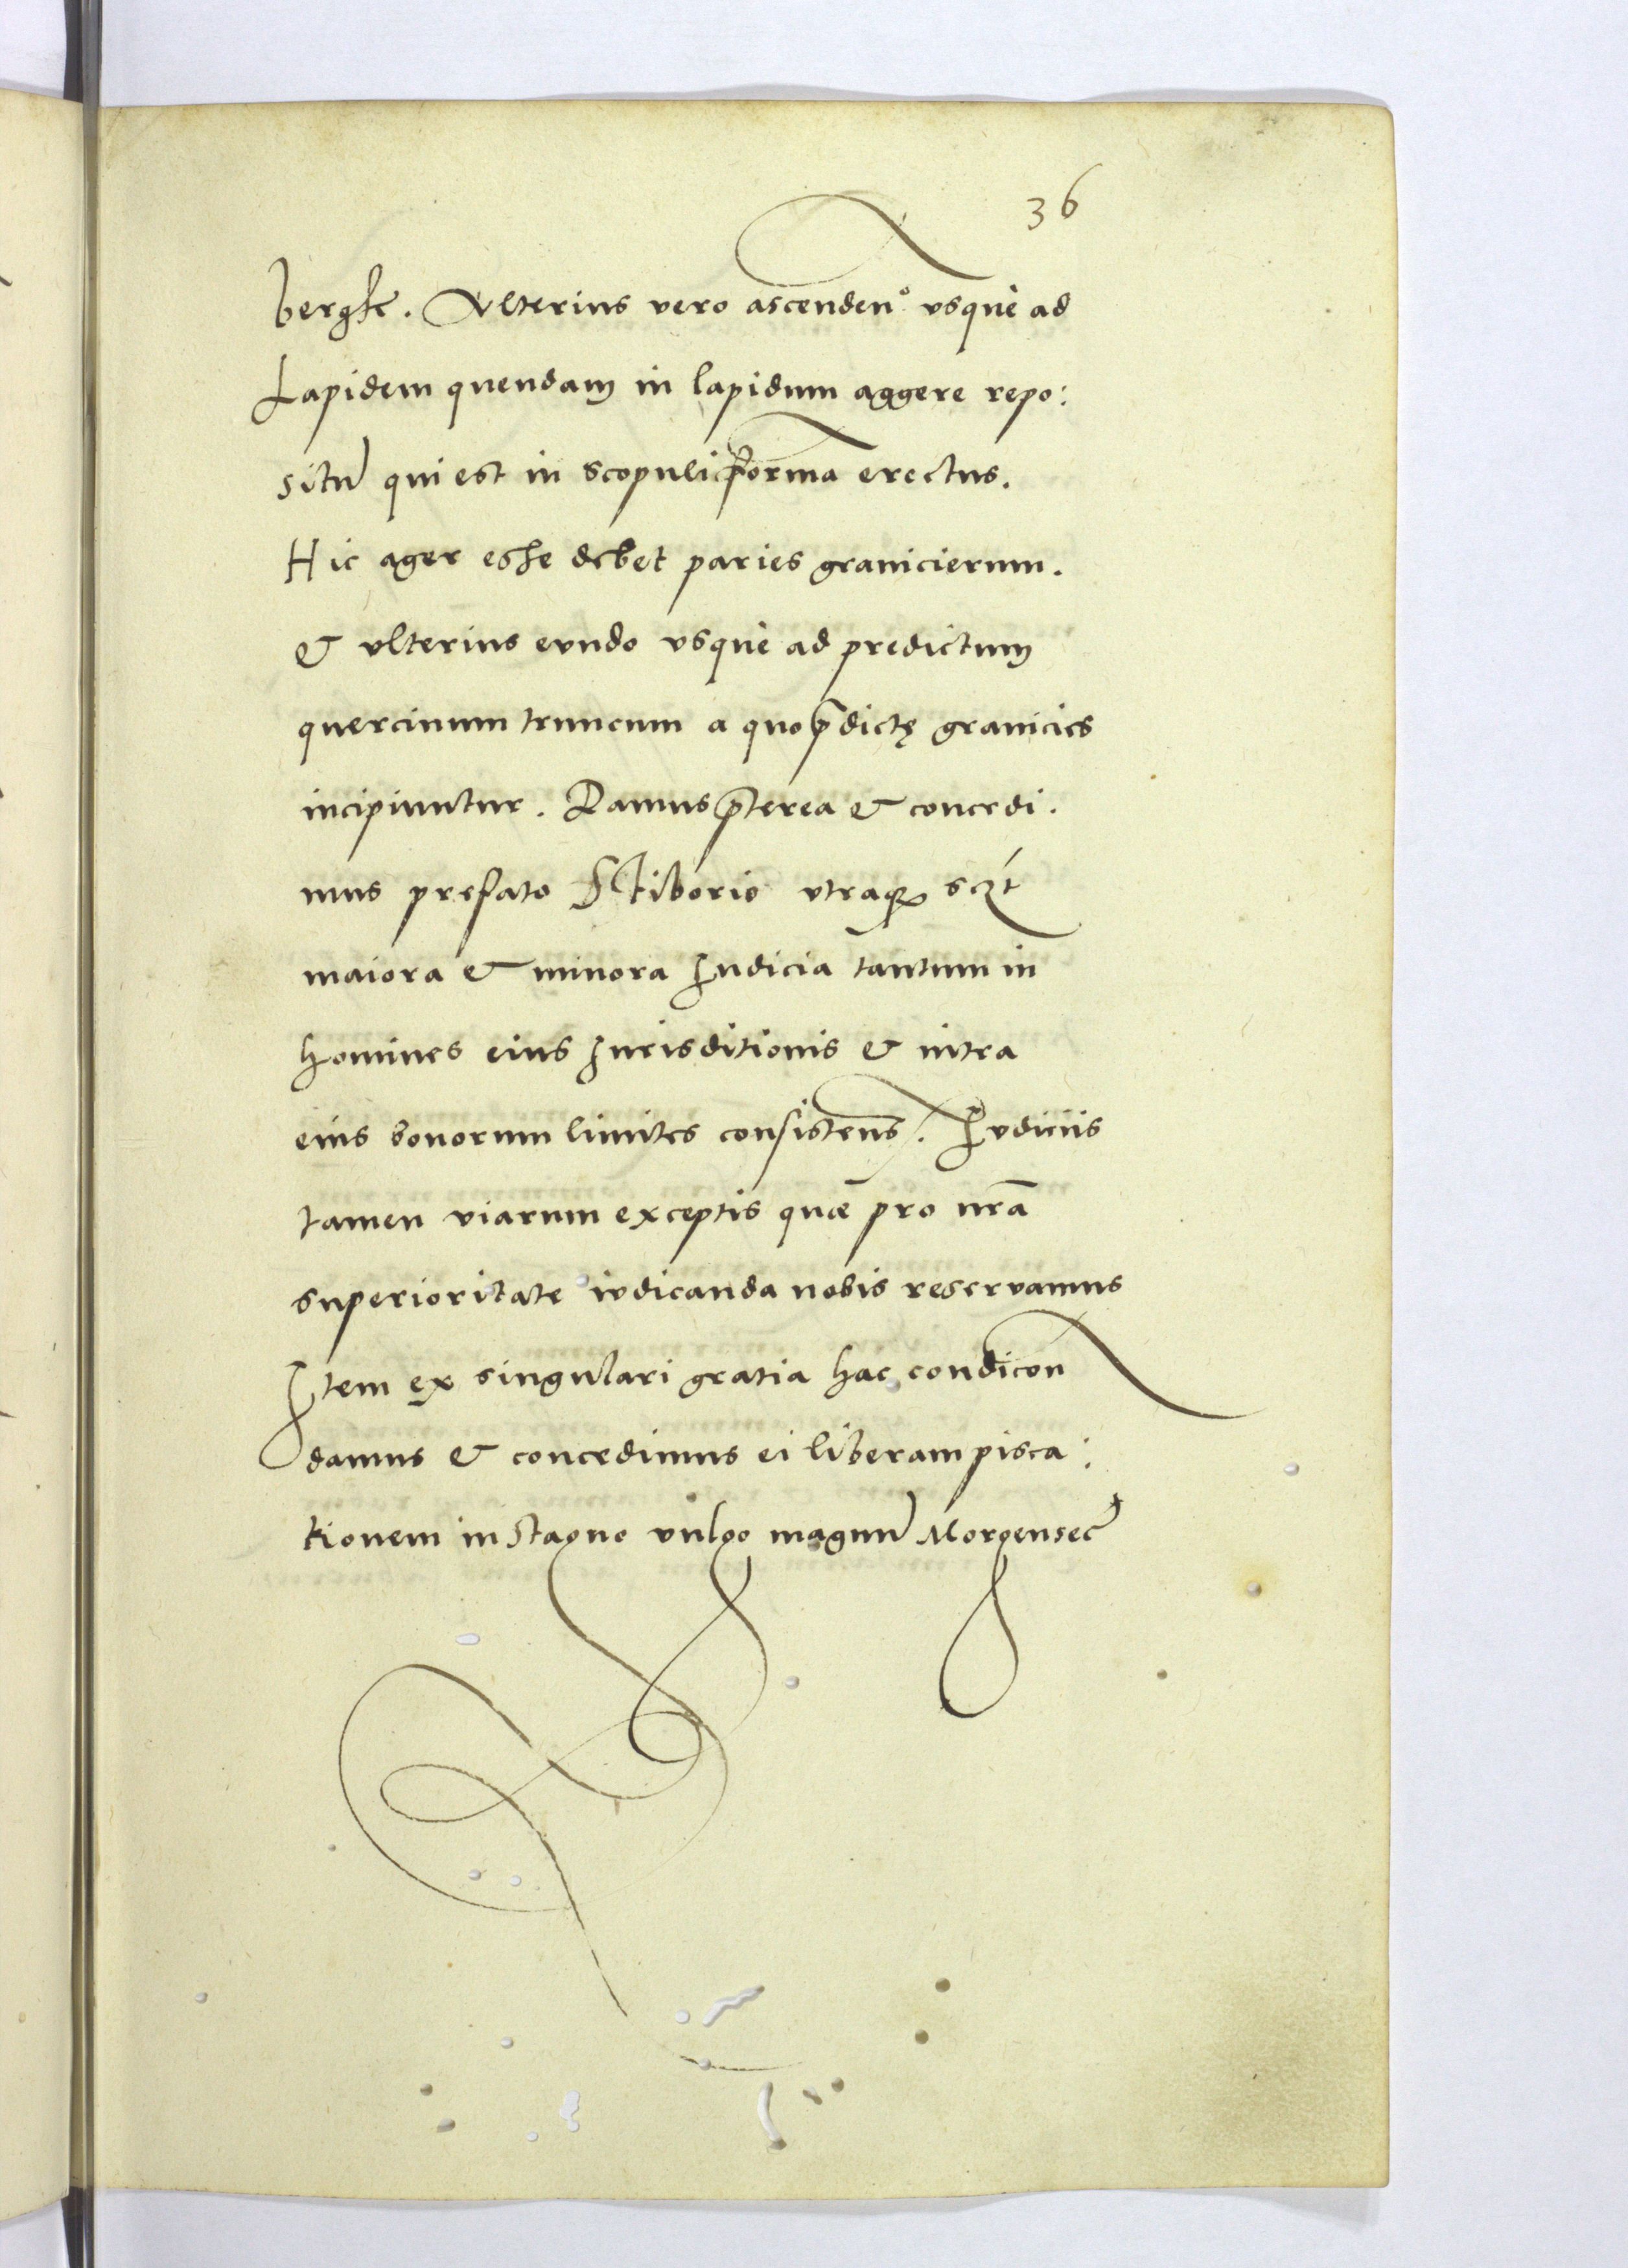 36
bergk. Vlterius vero ascenden° vsque ad
Lapidem quendam in lapidum aggere repo:
situ̅ qui est in scopuli forma erectus.
Hic ager esse debet paries granicierum.
& vlterius eundo vsque ad predictum
quercinum truncum a quo p̄dictę granicies
incipiuntur. Damus p̄terea & concedi.
mus prefato Stiborio vtraqꝫ sczt
maiora & minora Iudicia tantum in
homines eius Iurisditionis & intra
eius bonorum limites consistens. Iudiciis
tamen viarum exceptis quæ pro nr̄a
superioritate iudicanda nobis reservamus
Item ex singulari gratia hac condicōn
damus & concedimus ei liberam pisca:
tionem in stagno vulgo magnu̅ Morgensee